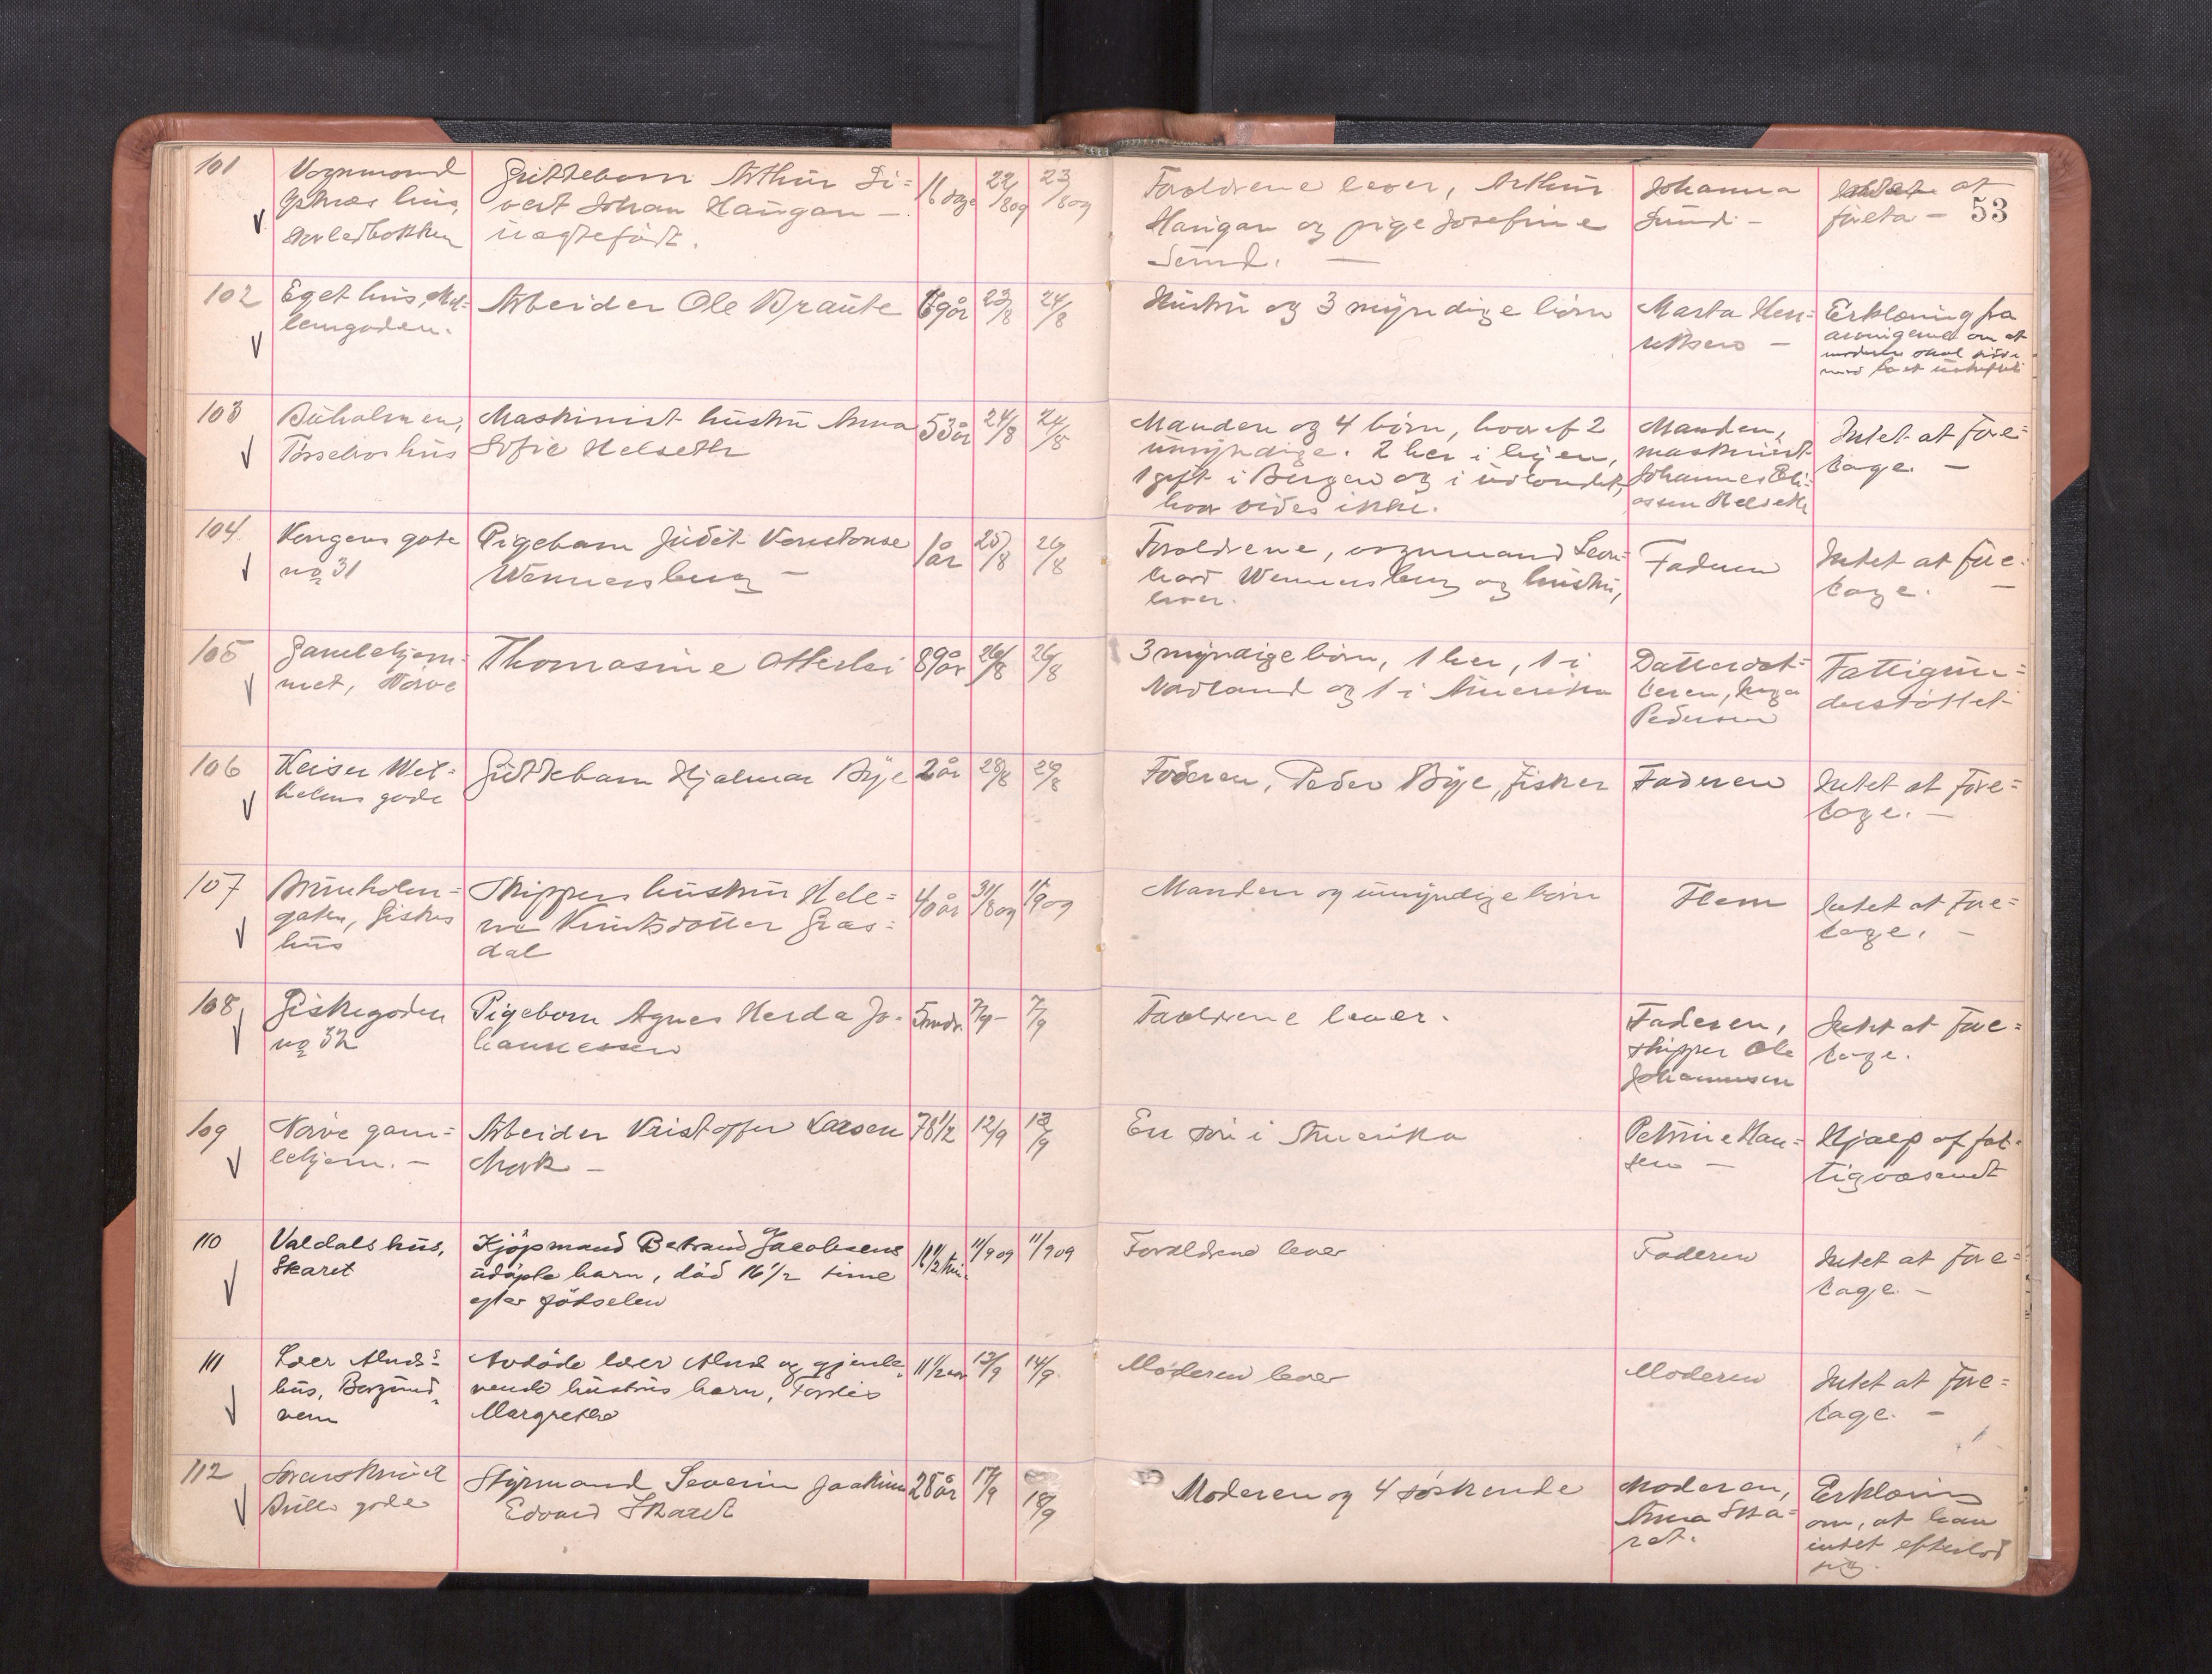 53
101
Vognmand
hus,
Guttebarn Arthur Si=
vert Johan Haugan —
uægtefødt.
16 dage
22/8 09
23/8 09
Forældrene lever, Arthur
Haugan og pige Josefine
Sund. —
Johanna
Sund —
at
foreta —
102
Eget hus, Mel=
lemgaden.
Arbeider Ole Braute
69 år
23/8
24/8
Hustru og 3 myndige børn
Marta Hen=
riksen —
Erklæring fra
arvingerne om at
103
Buholmen,
hus
Maskinist hustru Anna
Sofie Helseth
53 år
24/8
24/8
Manden og 4 børn, hvoraf 2
umyndige. 2 her i byen,
1 gift i Bergen og i udlandet,
hvor vides ikke.
Manden,
maskinist
Johannes Eli=
assen Helseth
Intet at fore=
tage. —
104
Kongens gate
no 31
Pigebarn Judit Konstanse
Wennersberg —
1 år
25/8
26/8
Forældrene, vognmand Leon=
hard Wennersberg og hustru,
lever.
Faderen
Intet at fore=
tage. —
105
Gamlehjem=
met, Nørve
Thomasine Otterlei
89 år
26/8
26/8
3 myndige børn, 1 her, 1 i
Nordland og 1 i Amerika
Datterdat=
teren, Inga
Pedersen
Fattigun=
derstøttet
106
Keiser Wil=
helms gade
Guttebarn Hjalmar Bye
2 år
28/8
29/8
Faderen, Peder Bye, fisker
Faderen
Intet at fore=
tage. —
107
Brunholm=
gaten, Giskes
hus
Skippers hustru Hele=
ne Knutsdotter Gras=
dal
40 år
31/8 09
1/9 09
Manden og umyndige børn
Flem
Intet at fore=
tage. —
108
Giskegaden
no 32
Pigebarn Agnes Herda Jo=
hannessen
5 mdr.
7/9 —
7/9
Forældrene lever.
Faderen,
skipper Ole
Johannesen
Intet at fore=
tage.
109
Nørve gam=
lehjem. —
Arbeider Kristoffer Larsen
Mork —
78 1/2
12/9
13/9
En søn i Amerika
Petrine Han=
sen —
Hjælp af fat=
tigvæsenet
110
Valdals hus,
Skaret
Kjøpmand Betrand Jacobsens
udøpte barn, død 16 1/2 time
efter fødselen
16 1/2 tim.
11/9 09
11/9 09
Forældrene lever
Faderen
Intet at fore=
tage. —
111
Lær Alnes=
hus, Borgund=
veien
Avdøde lær Alnes og gjenle=
vende hustrus barn, Tordis
Margrethe
11 1/2
13/9
14/9
Moderen lever
Moderen
Intet at fore=
tage. —
112
gade
Styrmand Severin Joakim
Edvard Skaret
28 år
17/9
18/9
Moderen og 4 søskende
Moderen,
Anna Ska=
ret.
Erklæring
om, at han
intet efterlod
sig.